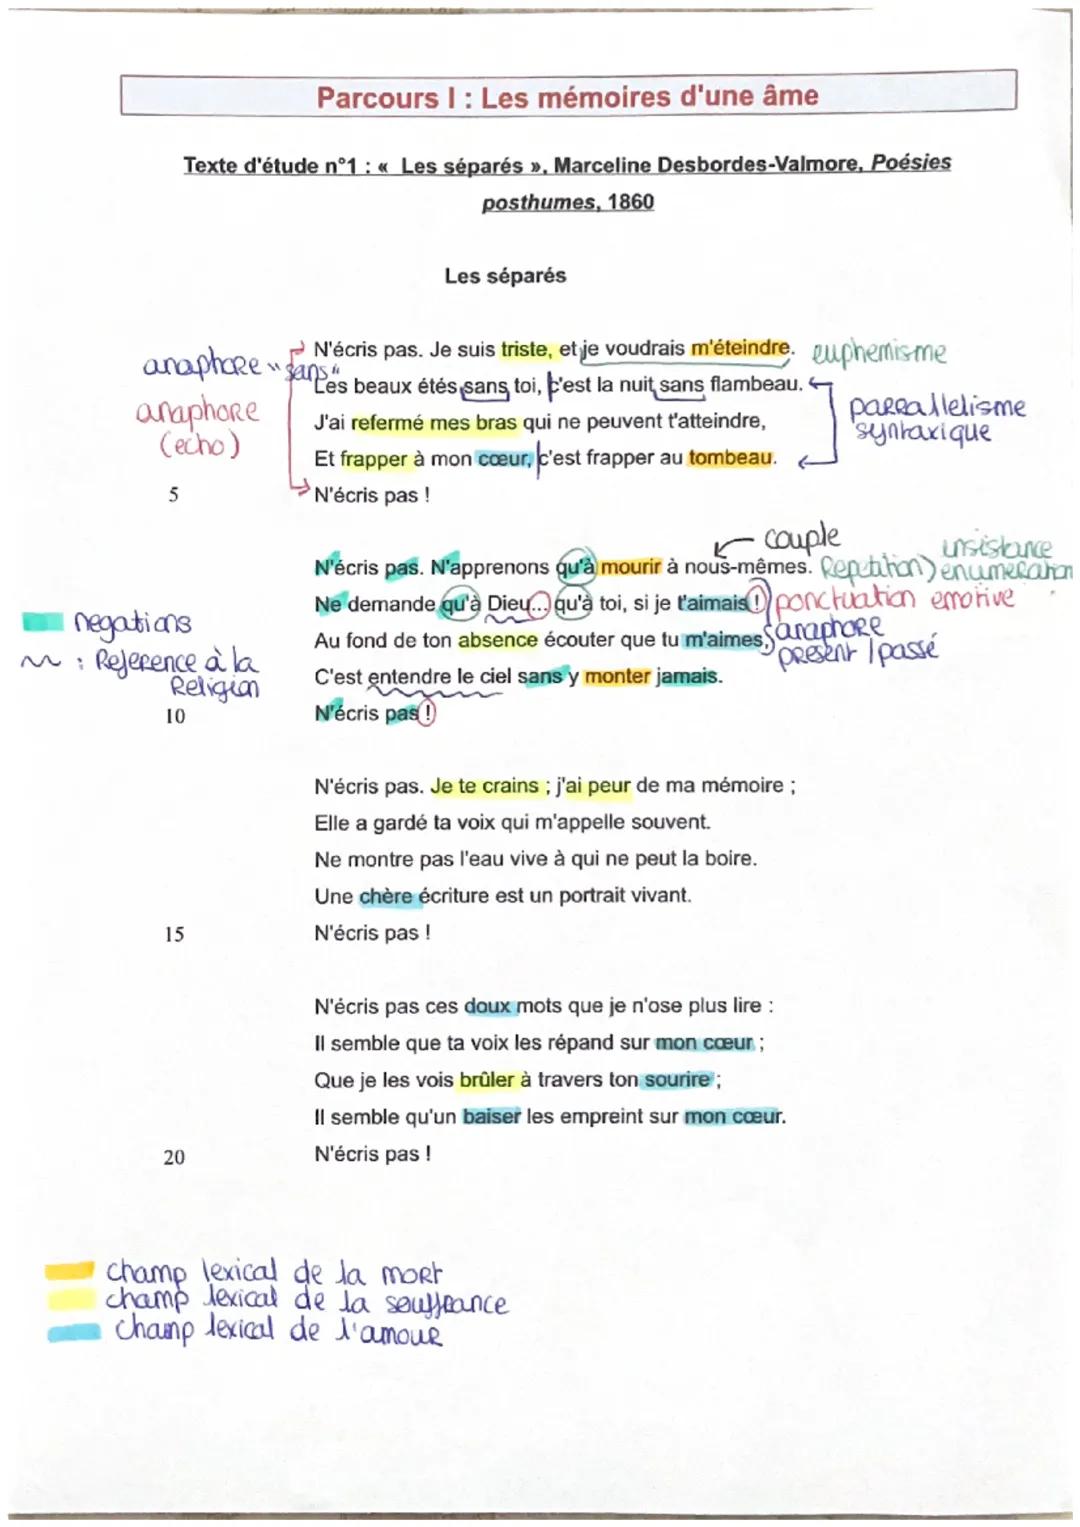 Parcours I : Les mémoires d'une âme
Texte d'étude n°1 : « Les séparés », Marceline Desbordes-Valmore, Poésies
posthumes, 1860
Les séparés
N'écris pas. Je suis triste, et je voudrais m'éteindre. euphemisme
anaphore "sans"
Les beaux étés sans toi, c'est la nuit sans flambeau.
anaphore
(echo)
J'ai refermé mes bras qui ne peuvent t'atteindre,
parrallelisme
syntaxique
Et frapper à mon cœur, c'est frapper au tombeau.
5 N'écris pas !
couple
insistance
N'écris pas. N'apprenons qu'à mourir à nous-mêmes. Repetition) enumeration
Ne demande qu'à Dieu... qu'à toi, si je t'aimais ! ponctuation emotive
negations
Au fond de ton absence écouter que tu m'aimes, anaphore
present / passé
~ : Reference à la
Religion
C'est entendre le ciel sans y monter jamais.
10 N'écris pas !
N'écris pas. Je te crains ; j'ai peur de ma mémoire ;
Elle a gardé ta voix qui m'appelle souvent.
Ne montre pas l'eau vive à qui ne peut la boire.
Une chère écriture est un portrait vivant.
15 N'écris pas !
N'écris pas ces doux mots que je n'ose plus lire :
Il semble que ta voix les répand sur mon cœur ;
Que je les vois brûler à travers ton sourire ;
Il semble qu'un baiser les empreint sur mon cœur.
20 N'écris pas !
champ lexical de la mort
champ lexical de la souffrance
champ lexical de l'amour